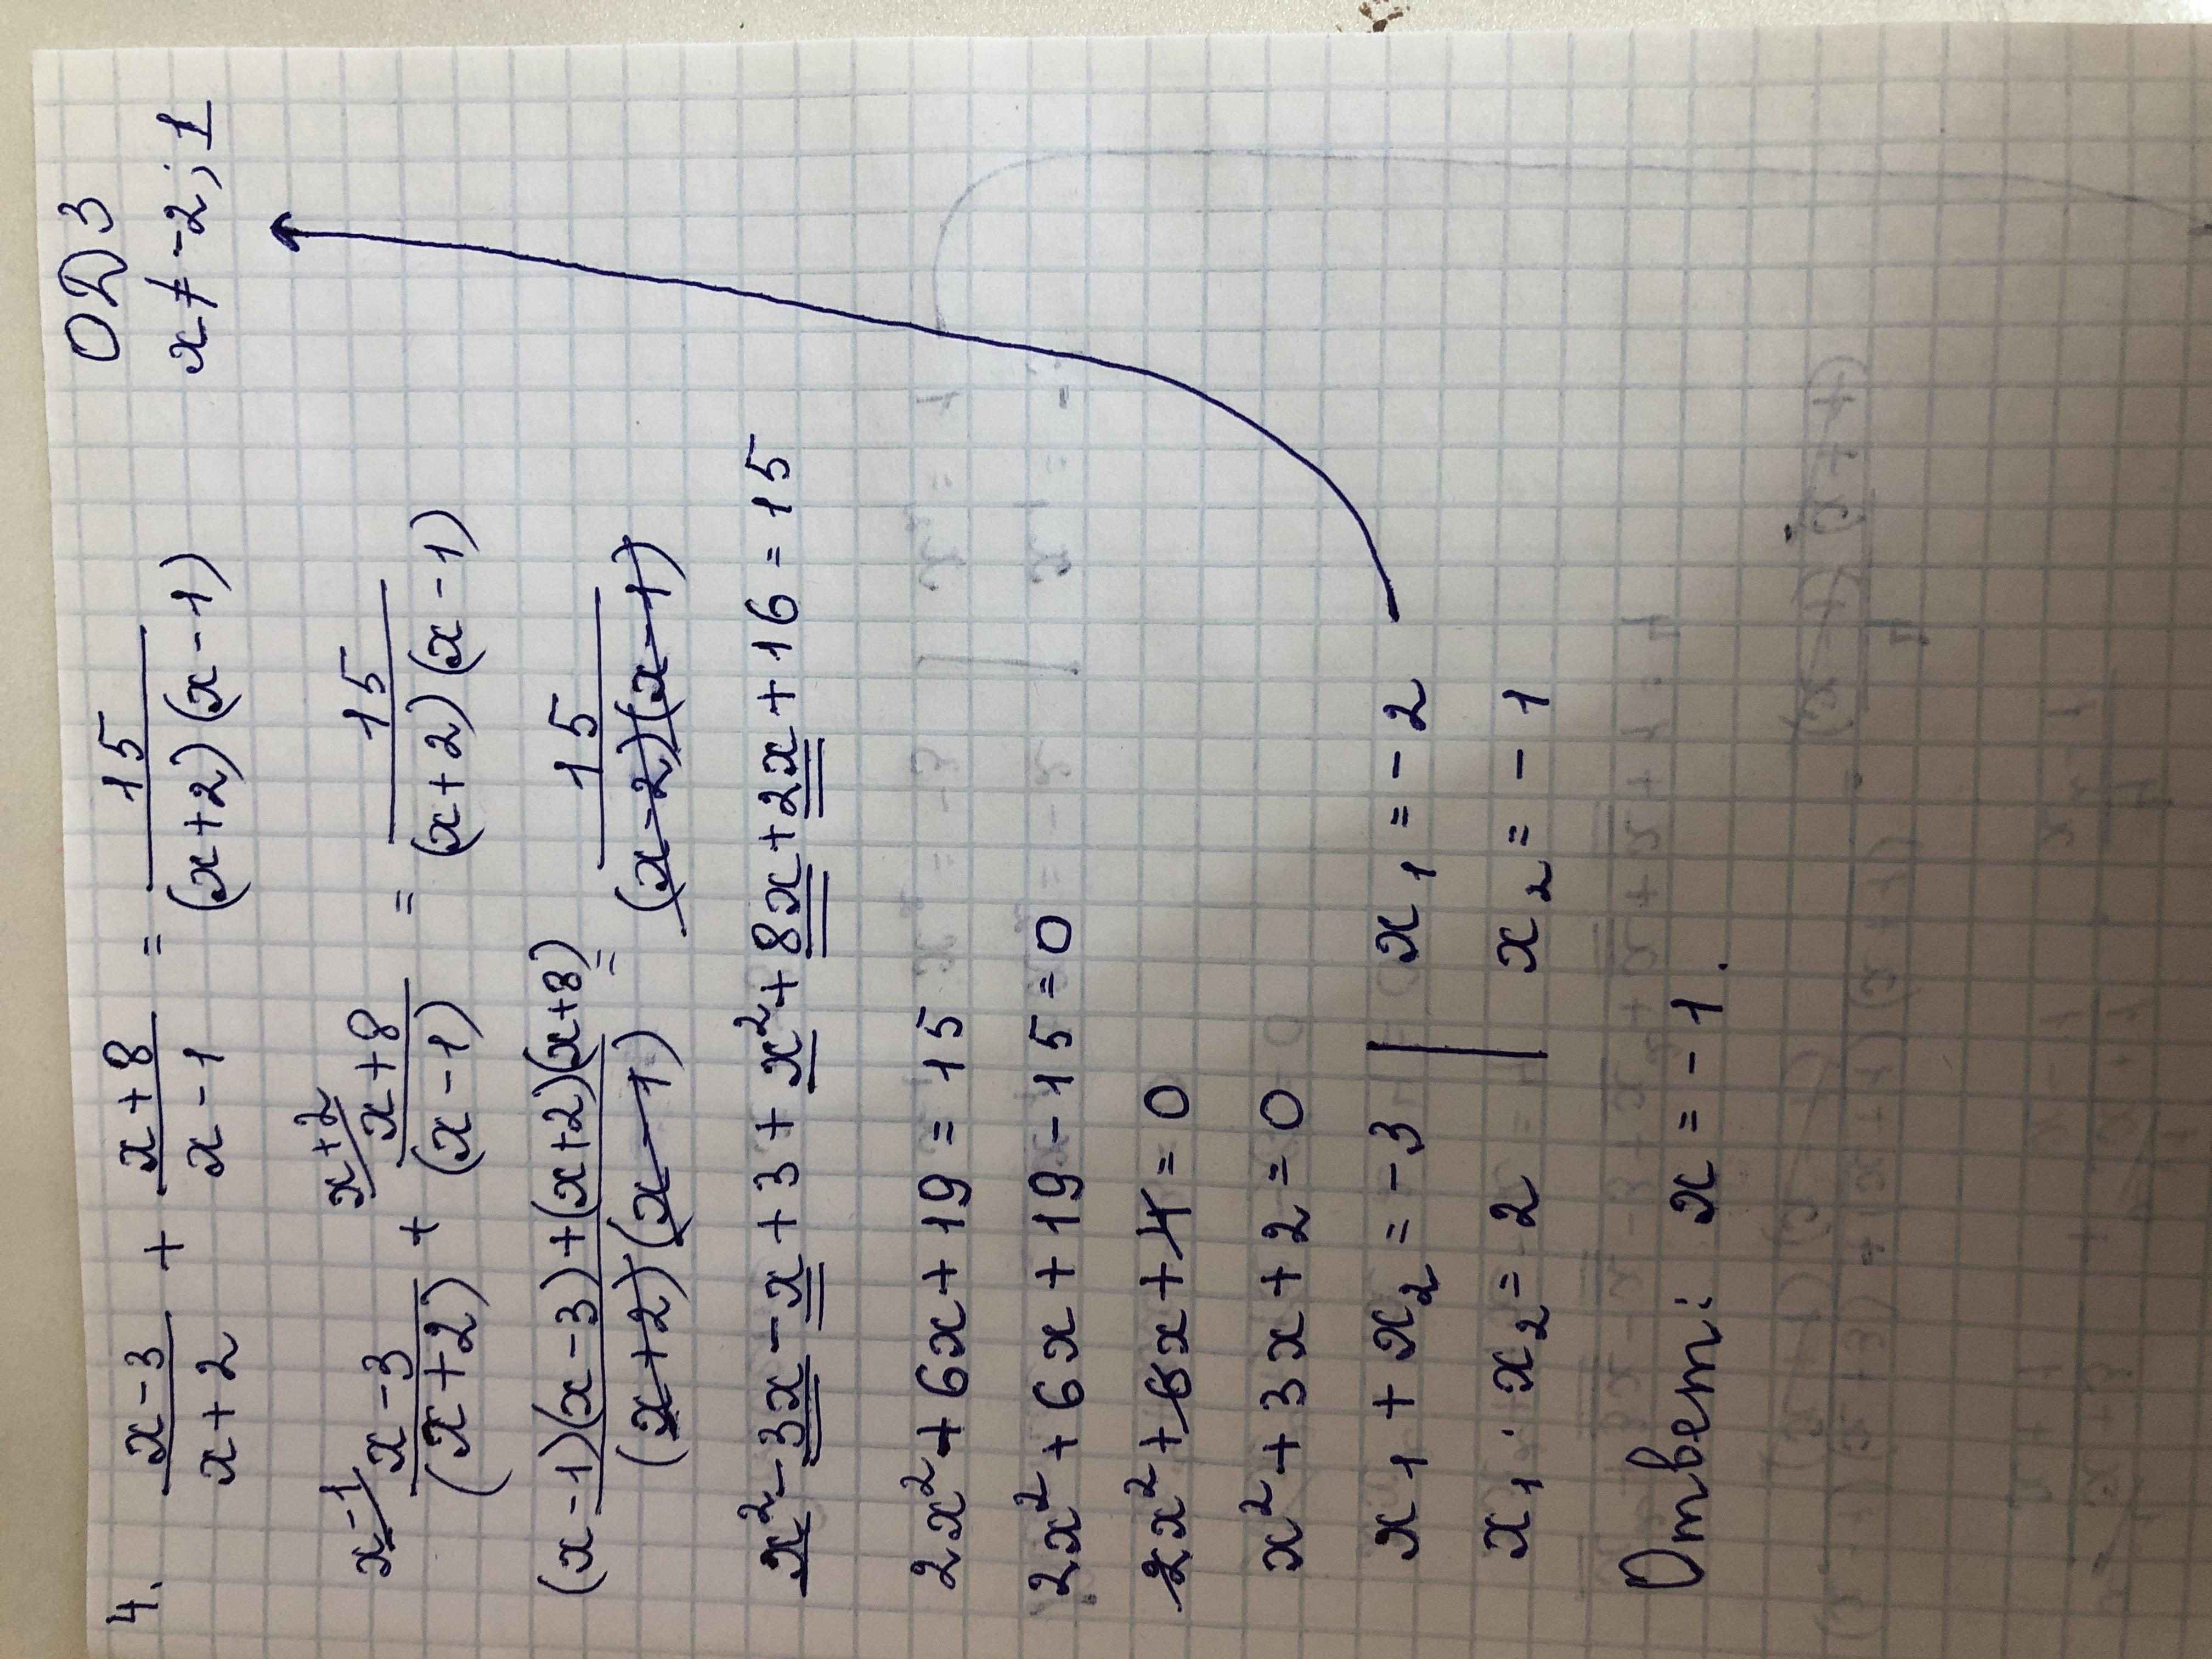 4. (x-3)/(x+2) + (x+8)/(x-1) = 15/((x+2)(x-1)) ОДЗ
x ≠ -2; 1
x-1/ (x-3)/((x+2)) + x+2/ (x+8)/((x-1)) = 15/((x+2)(x-1))
((x-1)(x-3)+(x+2)(x+8))/((x+2)(x-1)) = 15/((x-2)(x-1))
x²-3x-x+3+x²+8x+2x+16=15
2x²+6x+19=15
2x²+6x+19-15=0
2x²+6x+4=0
x²+3x+2=0
x₁+x₂=-3 | x₁=-2
x₁·x₂=2 | x₂=-1
Ответ: x=-1.